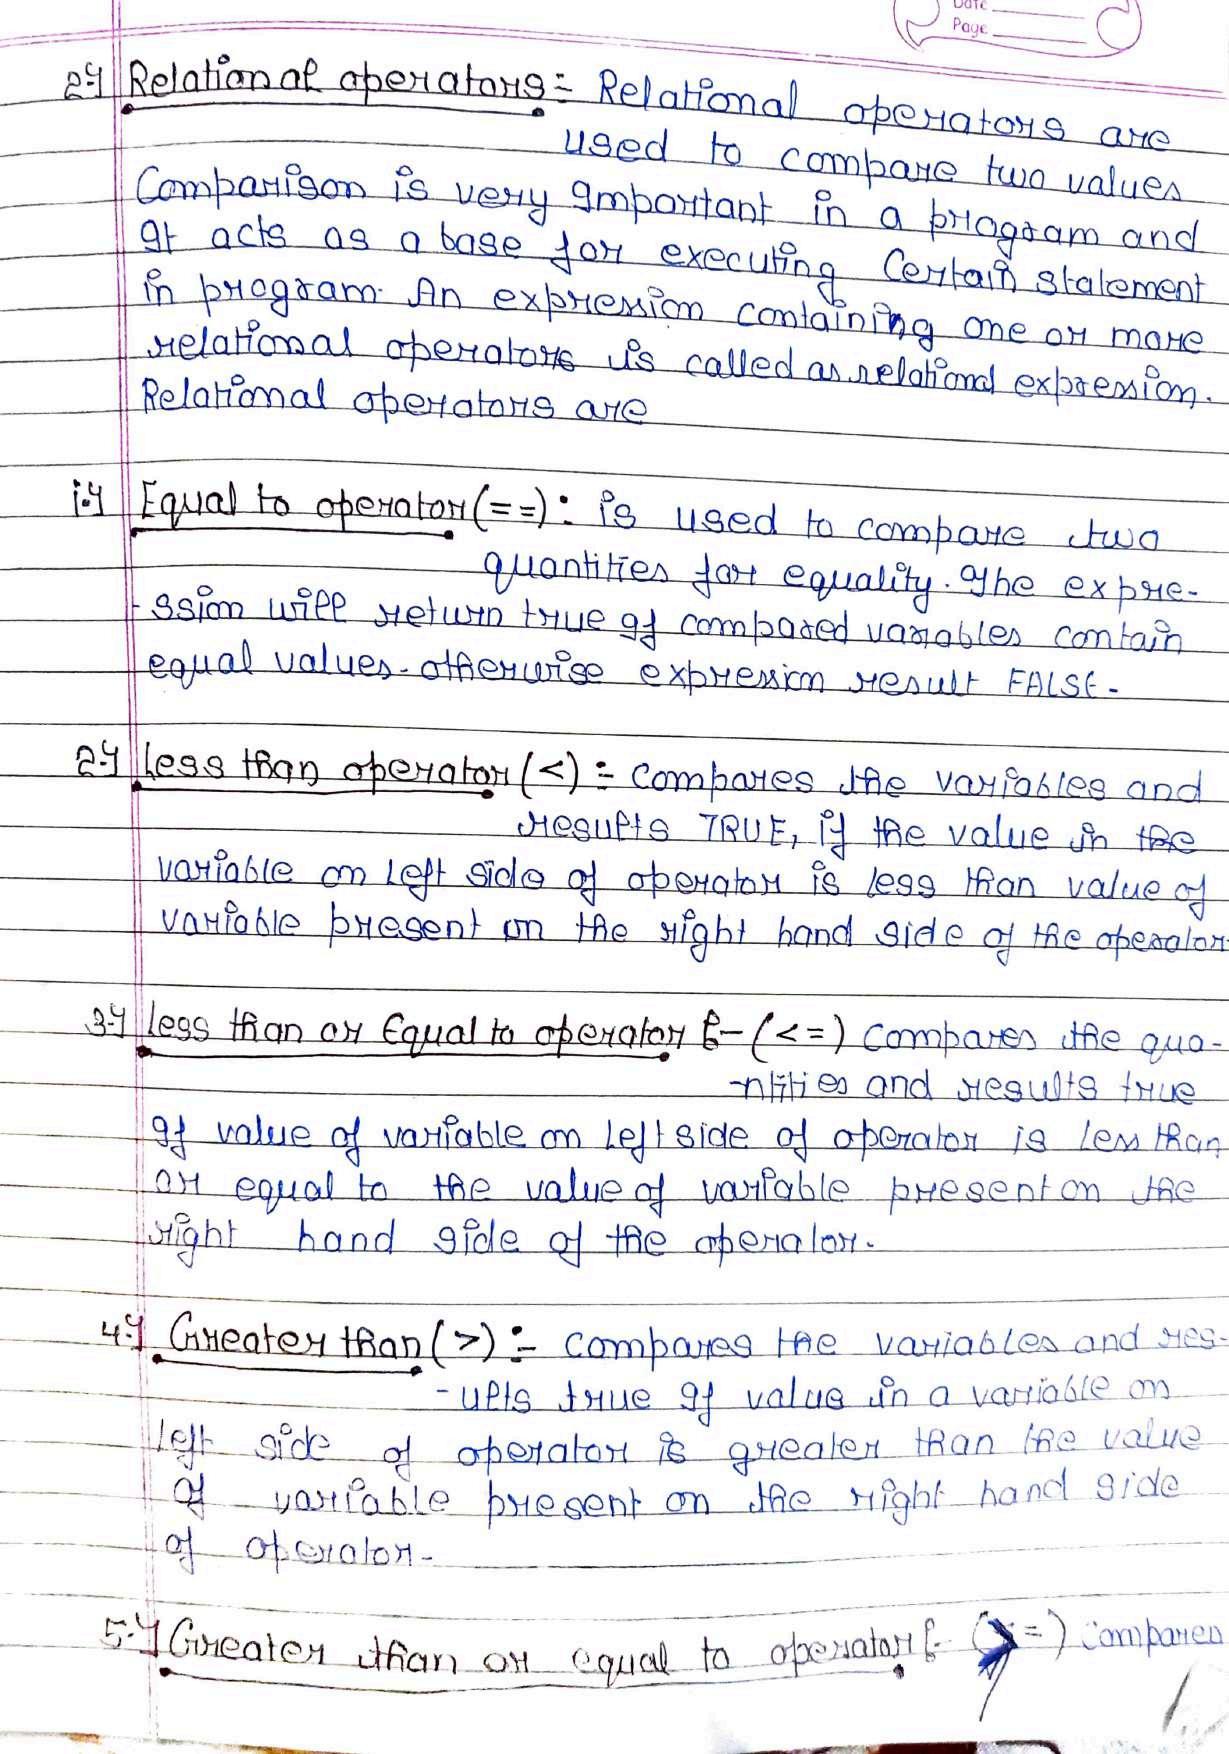 Date
Page
2.) Relational operators:- Relational operators are
used to compare two values
Comparison is very important in a program and
It acts as a base for executing Certain statement
in program. An expression containing one or more
relational operators is called as relational expression.
Relational operators are
1.) Equal to operator (==): is used to compare two
quantities for equality. The expre-
-ssion will return true If compared variables contain
equal values. otherwise expression result FALSE.
2.) Less than operator (<) :- compares the variables and
results TRUE, if the value in the
variable on left side of operator is less than value of
variable present on the right hand side of the operator
3.) Less than or Equal to operator :- (<=) compares the qua-
-ntities and results true
If value of variable on left side of operator is less than
or equal to the value of variable present on the
right hand side of the operator.
4.) Greater than (>) :- compares the variables and res-
-ults true If value in a variable on
left side of operator is greater than the value
of variable present on the right hand side
of operator.
5.) Greater than or equal to operator :- (>=) compares